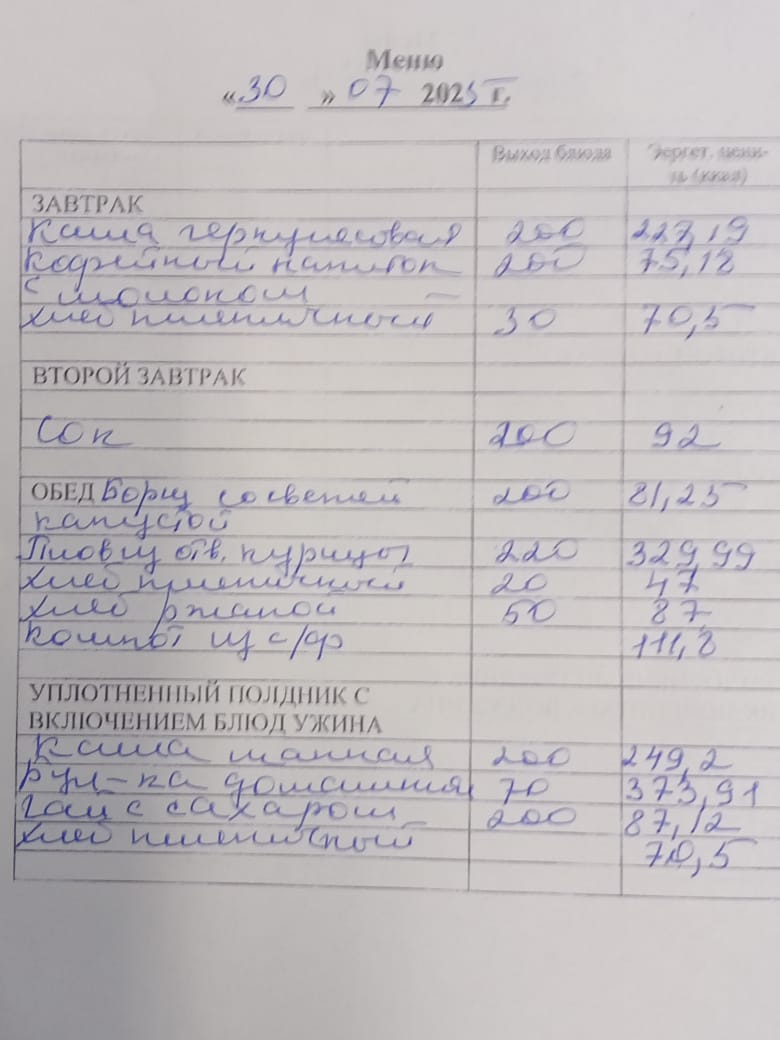 Меню
«30» 07 2025 г.
Выход блюда Энергет. ценн-
ть (ккал)
ЗАВТРАК
Каша геркулесовая 200 227,19
Кофейный напиток 200 75,18
с молоком —
хлеб пшеничный 30 70,5
ВТОРОЙ ЗАВТРАК
Сок 200 92
ОБЕД Борщ со свежей 200 81,25
капустой
Плов из отв. курицы 220 329,99
хлеб пшеничный 20 47
хлеб ржаной 50 87
Компот из с/ф 111,8
УПЛОТНЕННЫЙ ПОЛДНИК С
ВКЛЮЧЕНИЕМ БЛЮД УЖИНА
Каша манная 200 249,2
Бул-ка домашняя 70 373,91
чай с сахаром 200 87,12
хлеб пшеничный 70,5